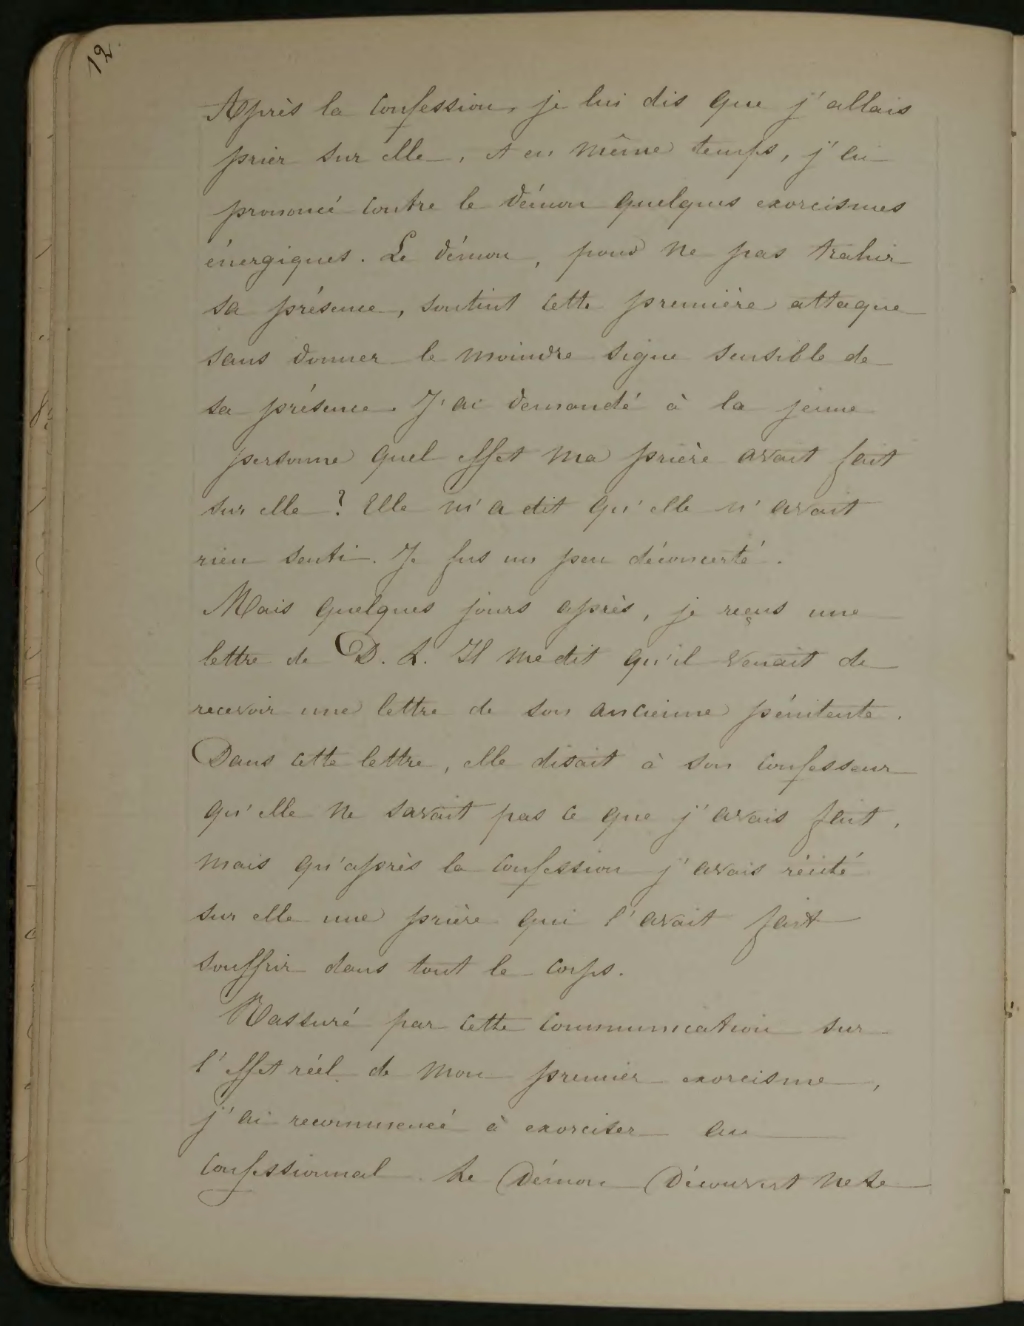 12.
Après la Confession, je lui dis que j'allais
prier sur elle, et en même temps, j'ai
prononcé contre le démon quelques exorcismes
énergiques. Le démon, pour ne pas trahir
sa présence, soutint cette première attaque
sans donner le moindre signe sensible de
sa présence. J'ai demandé à la jeune
personne quel effet ma prière avait fait
sur elle ? Elle m'a dit qu'elle n'avait
rien senti. Je fus un peu déconcerté.
Mais quelques jours après, je reçus une
lettre de D. L. Il me dit qu'il venait de
recevoir une lettre de son ancienne pénitente.
Dans cette lettre, elle disait à son confesseur
qu'elle ne savait pas ce que j'avais fait,
mais qu'après la confession j'avais récité
sur elle une prière qui l'avait fait
souffrir dans tout le corps.
Rassuré par cette communication sur
l'effet réel de mon premier exorcisme,
j'ai recommencé à exorciser au
Confessionnal. Le Démon Découvert ne se